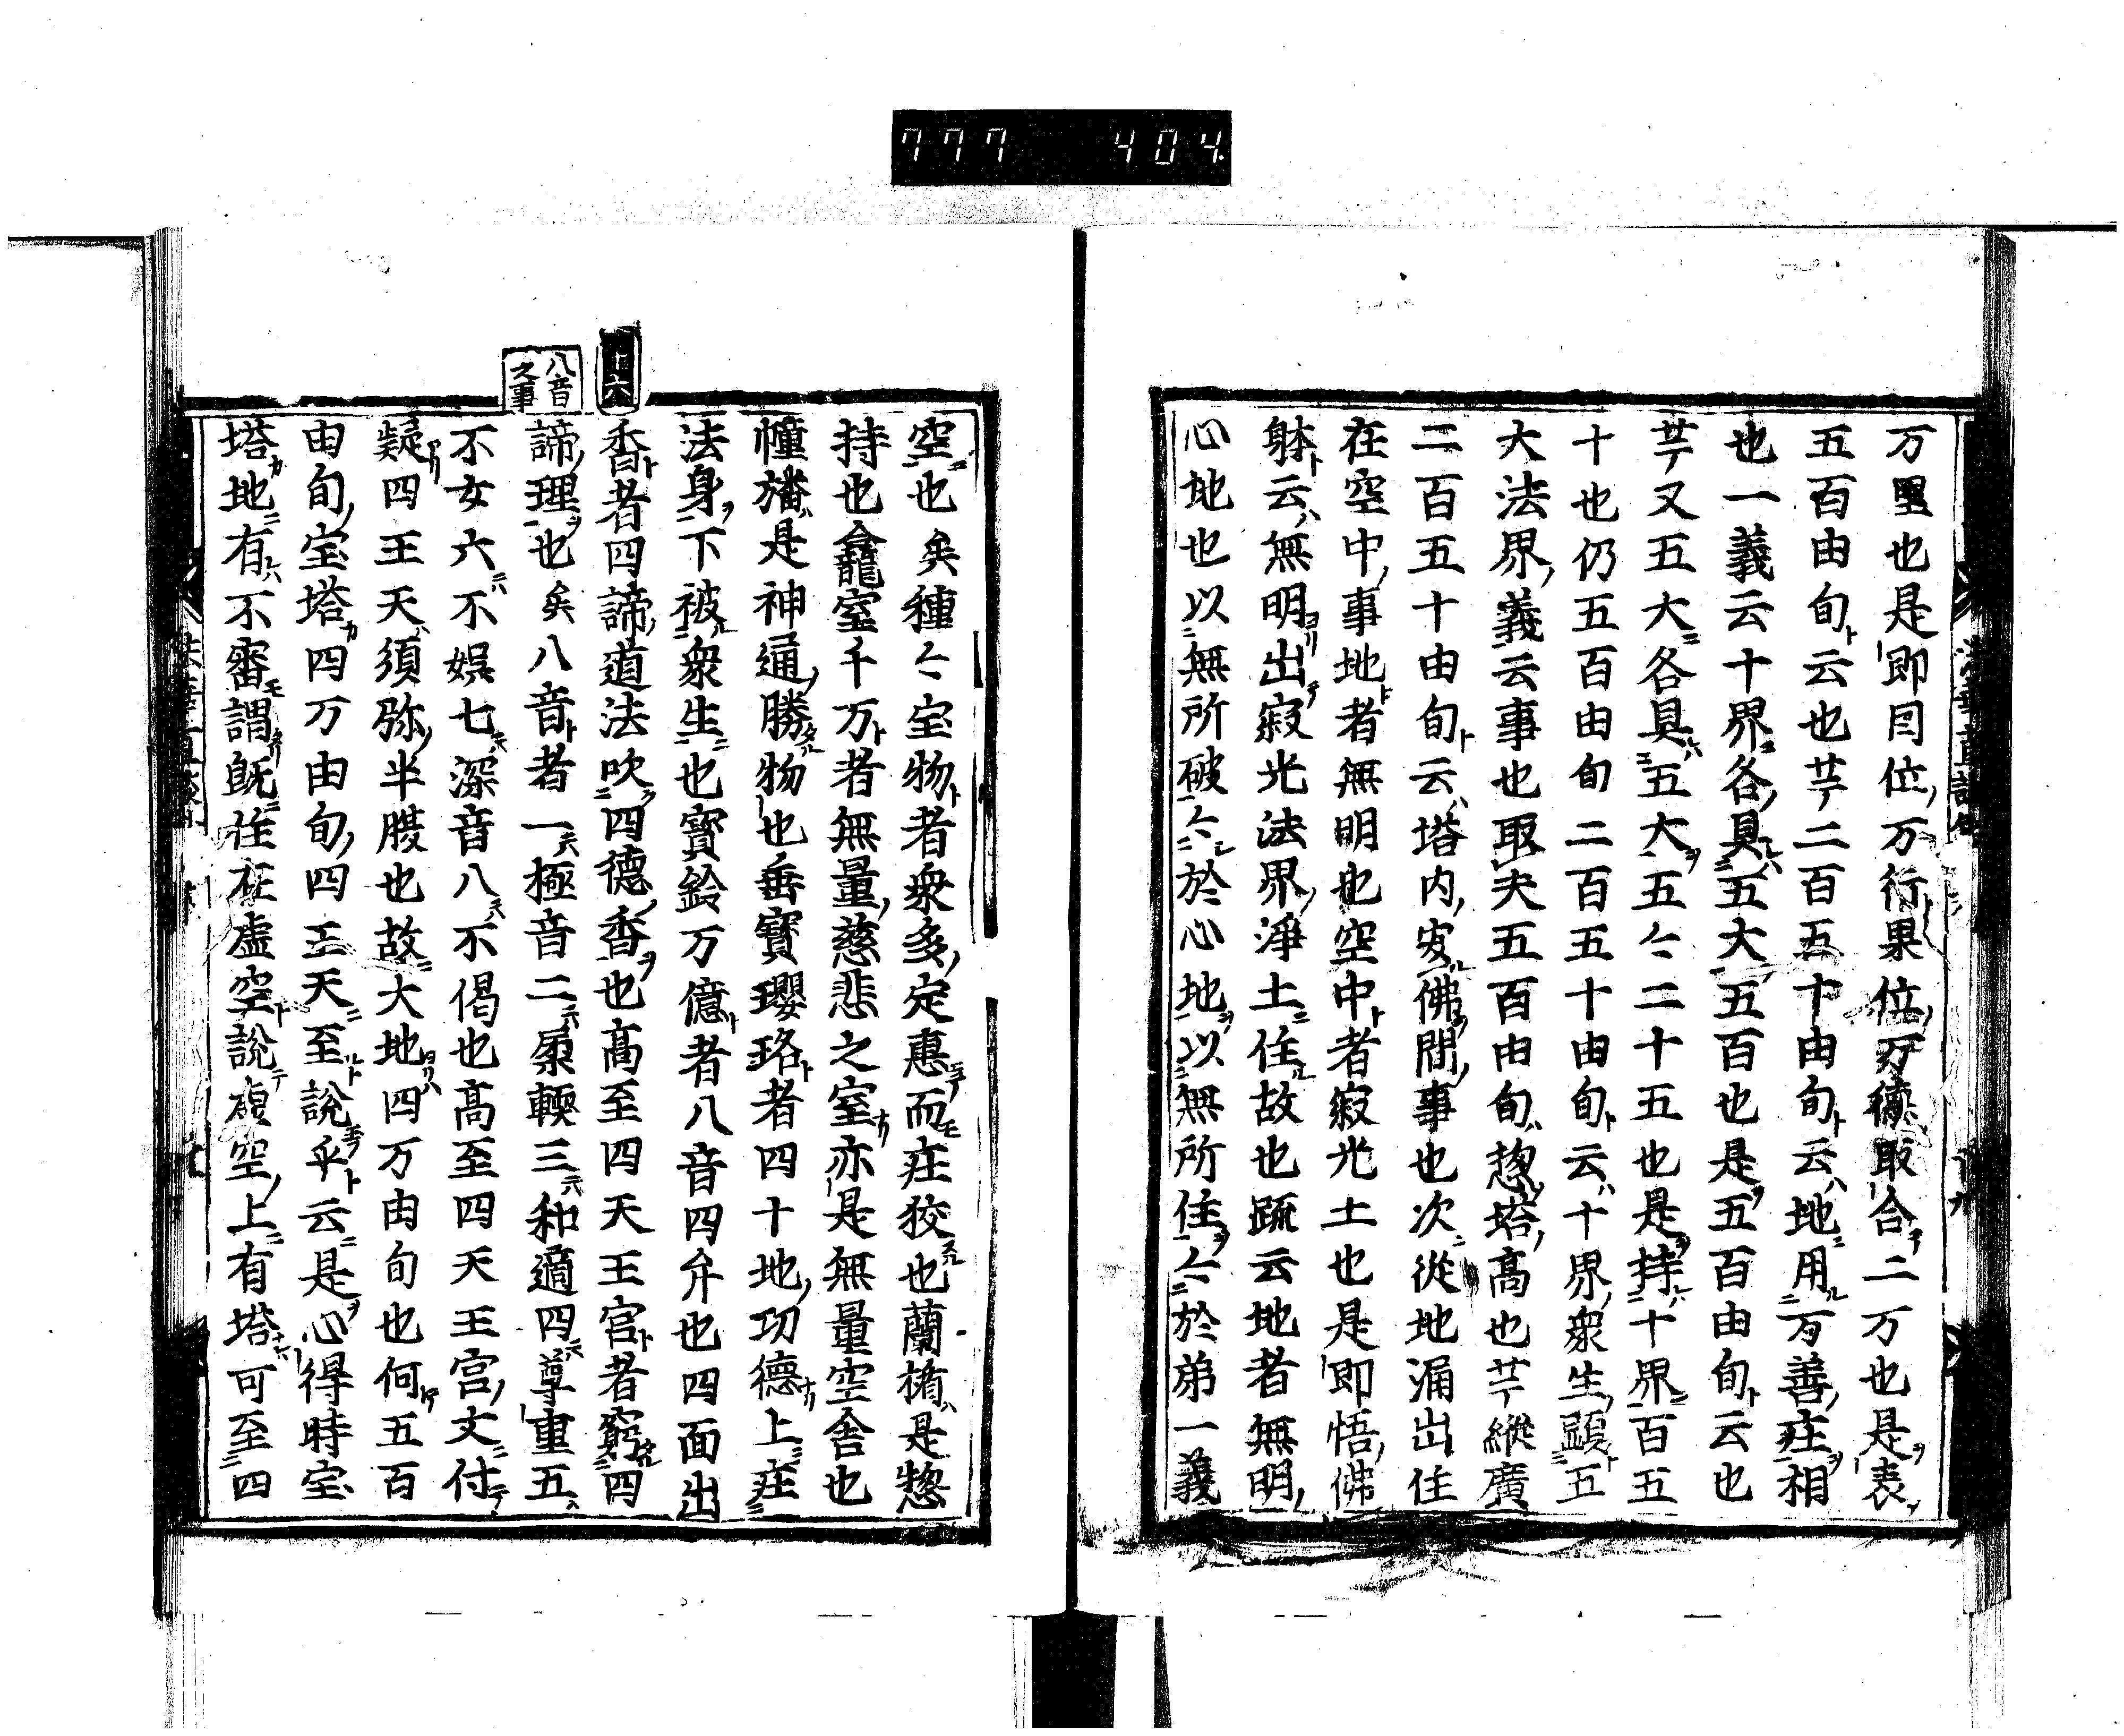 777 404
万里也是即因位万行果位万德取合二万也是表
五百由旬云也廿二百五十由旬云地用万善庄相
也一義云十界各具五大五百也是五百由旬云也
廿又五大各具五大五々二十五也是持十界百五
十也仍五百由旬二百五十由旬云十界衆生顕五
大法界義云事也取夫五百由旬惣塔高也廿縱廣
二百五十由旬云塔内安佛間事也次從地涌出住
在空中事地者無明也空中者寂光土也是即悟佛
躰云無明出寂光法界淨土住故也䟽云地者無明
心地也以無所破々於心地以無所住々於弟一義
空也矣種々宝物者衆多定惠而庄挍也蘭楯是惣
持也龕室千万者無量慈悲之室亦是無量空舎也
幢旛是神通勝物也垂寳瓔珞者四十地功德上庄
法身下被衆生也寳鈴万億者八音四弁也四面出
香者四諦道法吹四德香也髙至四天王官者窮四
諦理也矣八音者一極音二柔輭三和適四尊重五
不女六不娯七深音八不偈也髙至四天王宮文付
疑四王天須弥半腹也故大地四万由旬也何五百
由旬宝塔四万由旬四王天至說乎云是心得時宝
塔地有不審謂旣住在虚空說虚空上有塔可至四
十六
八音
之事